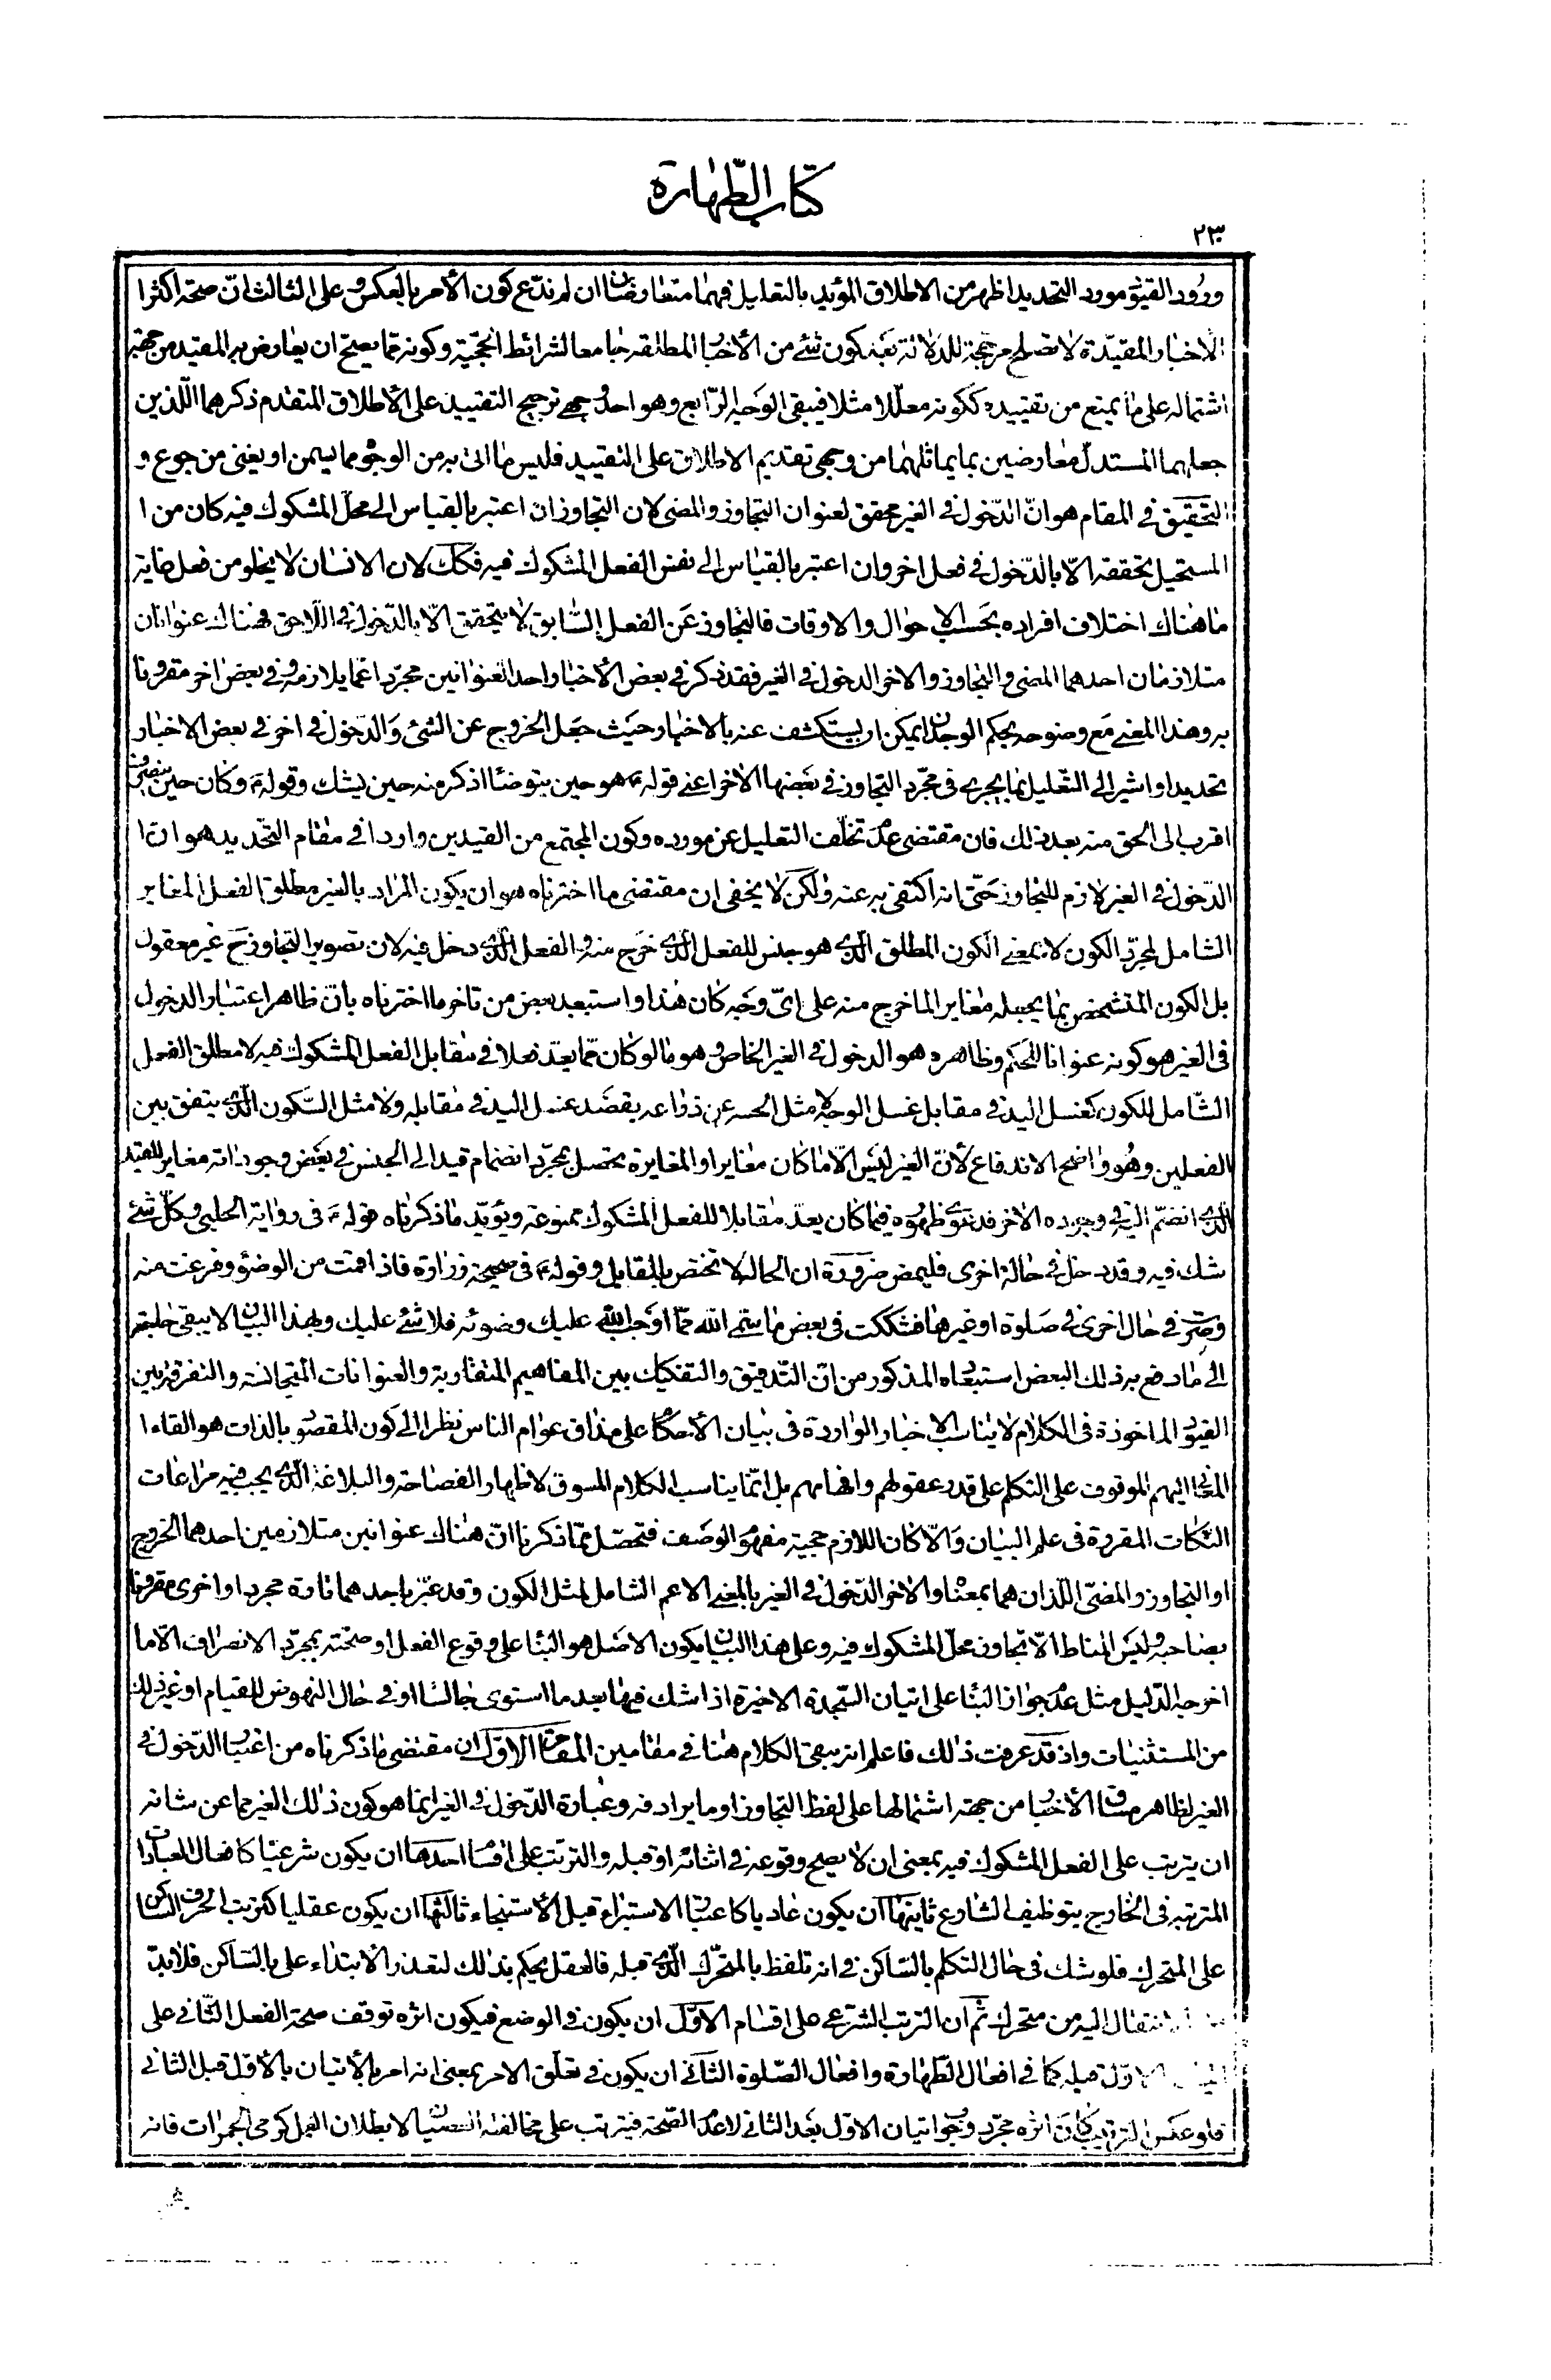 كتاب الطّهارة
٢٣
ورود القيود مورد التحديد اظهر من الاطلاق المؤيد بالتعليل فهما متعارضان ان لم ندّع كون الأمر بالعكس و على الثالث انّ صحّة اكثر ا
الاخبار المقيّدة لا تصلح مرجّحة للدلالة بعد كون شئ من الأخبار المطلقة جامعا لشرائط الحجّية و كونه ممّا يصحّ ان يعارض به المقيد من جهة
اشتماله على ما يمنع من تقييده ككونه معلّلا مثلا فيبقى الوجه الرّابع و هو احد وجهى ترجيح التقييد على الأطلاق المتقدم ذكرهما اللّذين
جعلهما المستدلّ معارضين بما يماثلهما من وجهى تقديم الاطلاق على التقييد فليس ما اتى به من الوجوه مما يسمن او يغنى من جوع و
التحقيق في المقام هو انّ الدّخول في الغير محقق لعنوان التجاوز و المضى لان التجاوز ان اعتبر بالقياس الى محلّ المشكوك فيه كان من ا
المستحيل تحققه الّا بالدّخول في فعل اخر و ان اعتبر بالقياس الى نفس الفعل المشكوك فيه فكك لان الانسان لا يخلو من فعل غاية
ما هناك اختلاف افراده بحسب الاحوال و الاوقات فالتجاوز عن الفعل السّابق لا يتحقق الّا بالدّخول في اللّاحق فهناك عنوانان
متلازمان احدهما المضى و التجاوز و الاخر الدخول في الغير فقد ذكر في بعض الأخبار احد العنوانين مجرّدا عمّا يلازمه و في بعض اخر مقرونا
به و هذا المعنى مع وضوحه بحكم الوجدان يمكن ان يستكشف عنه بالاخبار حيث جعل الخروج عن الشئ و الدّخول في اخر في بعض الاخبار
تحديدا و اشير الى التّعليل بما يجرى في مجرّد التجاوز في بعضها الاخر اعنى قوله ع هو حين يتوضّأ اذكر منه حين يشك و قوله ع و كان حين ينصرف
اقرب الى الحق منه بعد ذلك فان مقتضى عدم تخلّف التعليل عن مورده و كون المجتمع من القيدين واردا في مقام التّحديد هو ان ا
الدّخول في الغير لازم للتجاوز حتّى انه اكتفى به عنه و لكن لا يخفى ان مقتضى ما اخترناه هو ان يكون المراد بالغير مطلق الفعل المغاير
الشامل لمجرّد الكون لا بمعنى الكون المطلق الّذى هو جنس للفعل الّذى خرج منه و الفعل الّذى دخل فيه لان تصوير التجاوز ح غير معقول
بل الكون المتشخص بما يجعله مغايرا لما خرج منه على اىّ وجه كان هذا و استبعد بعض من تاخر ما اخترناه بانّ ظاهر اعتبار الدخول
في الغير هو كونه عنوانا للحكم و ظاهره هو الدخول في الغير الخاص و هو ما لو كان ممّا يعدّ فعلا في مقابل الفعل المشكوك فيه لا مطلق الفعل
الشّامل للكون كغسل اليد في مقابل غسل الوجه لا مثل الحسر عن ذراعه بقصد غسل اليد في مقابله و لا مثل السّكون الّذى يتفق بين
الفعلين و هو واضح الاندفاع لأنّ الغير ليس الّا ما كان مغايرا و المغايرة تحصل بمجرّد انضمام قيد الى الجنس في بعض وجوداته مغاير للقيد
الّذى انضمّ اليه في وجوده الاخر فدعوى ظهوره فيما كان يعدّ مقابلا للفعل المشكوك ممنوعة و يؤيّد ما ذكرناه قوله ع في رواية الحلبي و كلّ شئ
شك فيه و قد دخل في حالة اخرى فليمض ضرورة ان الحالة لا تختص بالمقابل و قوله ع في صحيحة زرارة فاذا قمت من الوضوء و فرغت منه
و صرت في حال اخرى في صلوة او غيرها فشككت في بعض ما سمّى الله ممّا اوجب الله عليك وضوئه فلا شئ عليك و بهذا البيان لا يبقى حاجة
الى ما دفع به ذلك البعض استبعاده المذكور من انّ التّدقيق و التفكيك بين المفاهيم المتقاربة و العنوانات المتجانسة و التفرقة بين
القيود الماخوذة في الكلام لا يناسب الاخبار الواردة في بيان الأحكام على مذاق عوام الناس نظرا الى كون المقصود بالذات هو القاء ا
المعنى اليهم الموقوف على التكلم على قدر عقولهم و افهامهم بل انّما يناسب الكلام المسوق لاظهار الفصاحة و البلاغة الّذى يجب فيه مراعات
النّكات المقررة في علم البيان و الّا كان اللازم حجية مفهوم الوصف فتحصّل ممّا ذكرنا انّ هناك عنوانين متلازمين احدهما الخروج
او التجاوز و المضىّ اللّذان هما بمعناه و الاخر الدّخول في الغير بالمعنى الاعم الشامل لمثل الكون و قد عبّر باحدهما تارة مجردا و اخرى مقرونا
بصاحبه و ليس المناط الّا تجاوز محلّ المشكوك فيه و على هذا البيان يكون الاصل هو البناء على وقوع الفعل او صحّته بمجرّد الانصراف الّا ما
اخرجه الدّليل مثل عدم جواز البناء على اتيان السّجدة الاخيرة اذا شك فيها بعد ما استوى جالسا او في حال النهوض للقيام او غير ذلك
من المستثنيات و اذ قد عرفت ذلك فاعلم انه يبقى الكلام هنا في مقامين المقام الاوّل ان مقتضى ما ذكرناه من اعتبار الدّخول في
الغير لظاهر مساق الأخبار من جهة اشتمالها على لفظ التجاوز او ما يرادفه و عبارة الدّخول في الغير انما هو كون ذلك الغير مما عن شانه
ان يترتب على الفعل المشكوك فيه بمعنى ان لا يصح وقوعه في اثنائه او قبله و الترتب على اقسام احدها ان يكون شرعيّا كافعال العبادات
المترتبة في الخارج بتوظيف الشارع ثانيها ان يكون عاديا كاعتبار الاستبراء قبل الأستنجاء ثالثها ان يكون عقليا كترتب الحرف الساكن
على المتحرك فلو شك في حال التكلم بالسّاكن في انه تلفظ بالمتحرّك الّذى قبله فالعقل يحكم بذلك لتعذر الابتداء على بالسّاكن فلا بدّ
الانتقال اليه من متحرك ثم ان الترتب الشرعي على اقسام الاوّل ان يكون في الوضع فيكون اثره توقف صحة الفعل الثّاني على
الاوّل قبله كما في افعال الطّهارة و افعال الصّلوة الثاني ان يكون في تعلّق الامر بمعنى انه امر بالأتيان بالأوّل قبل الثاني
فلو عكس الترتيب كان اثره مجرّد وجوب اتيان الاوّل بعد الثاني لا عدم الصّحة فيترتب على مخالفته العصيان لا بطلان العمل كرمى الجمرات فانه